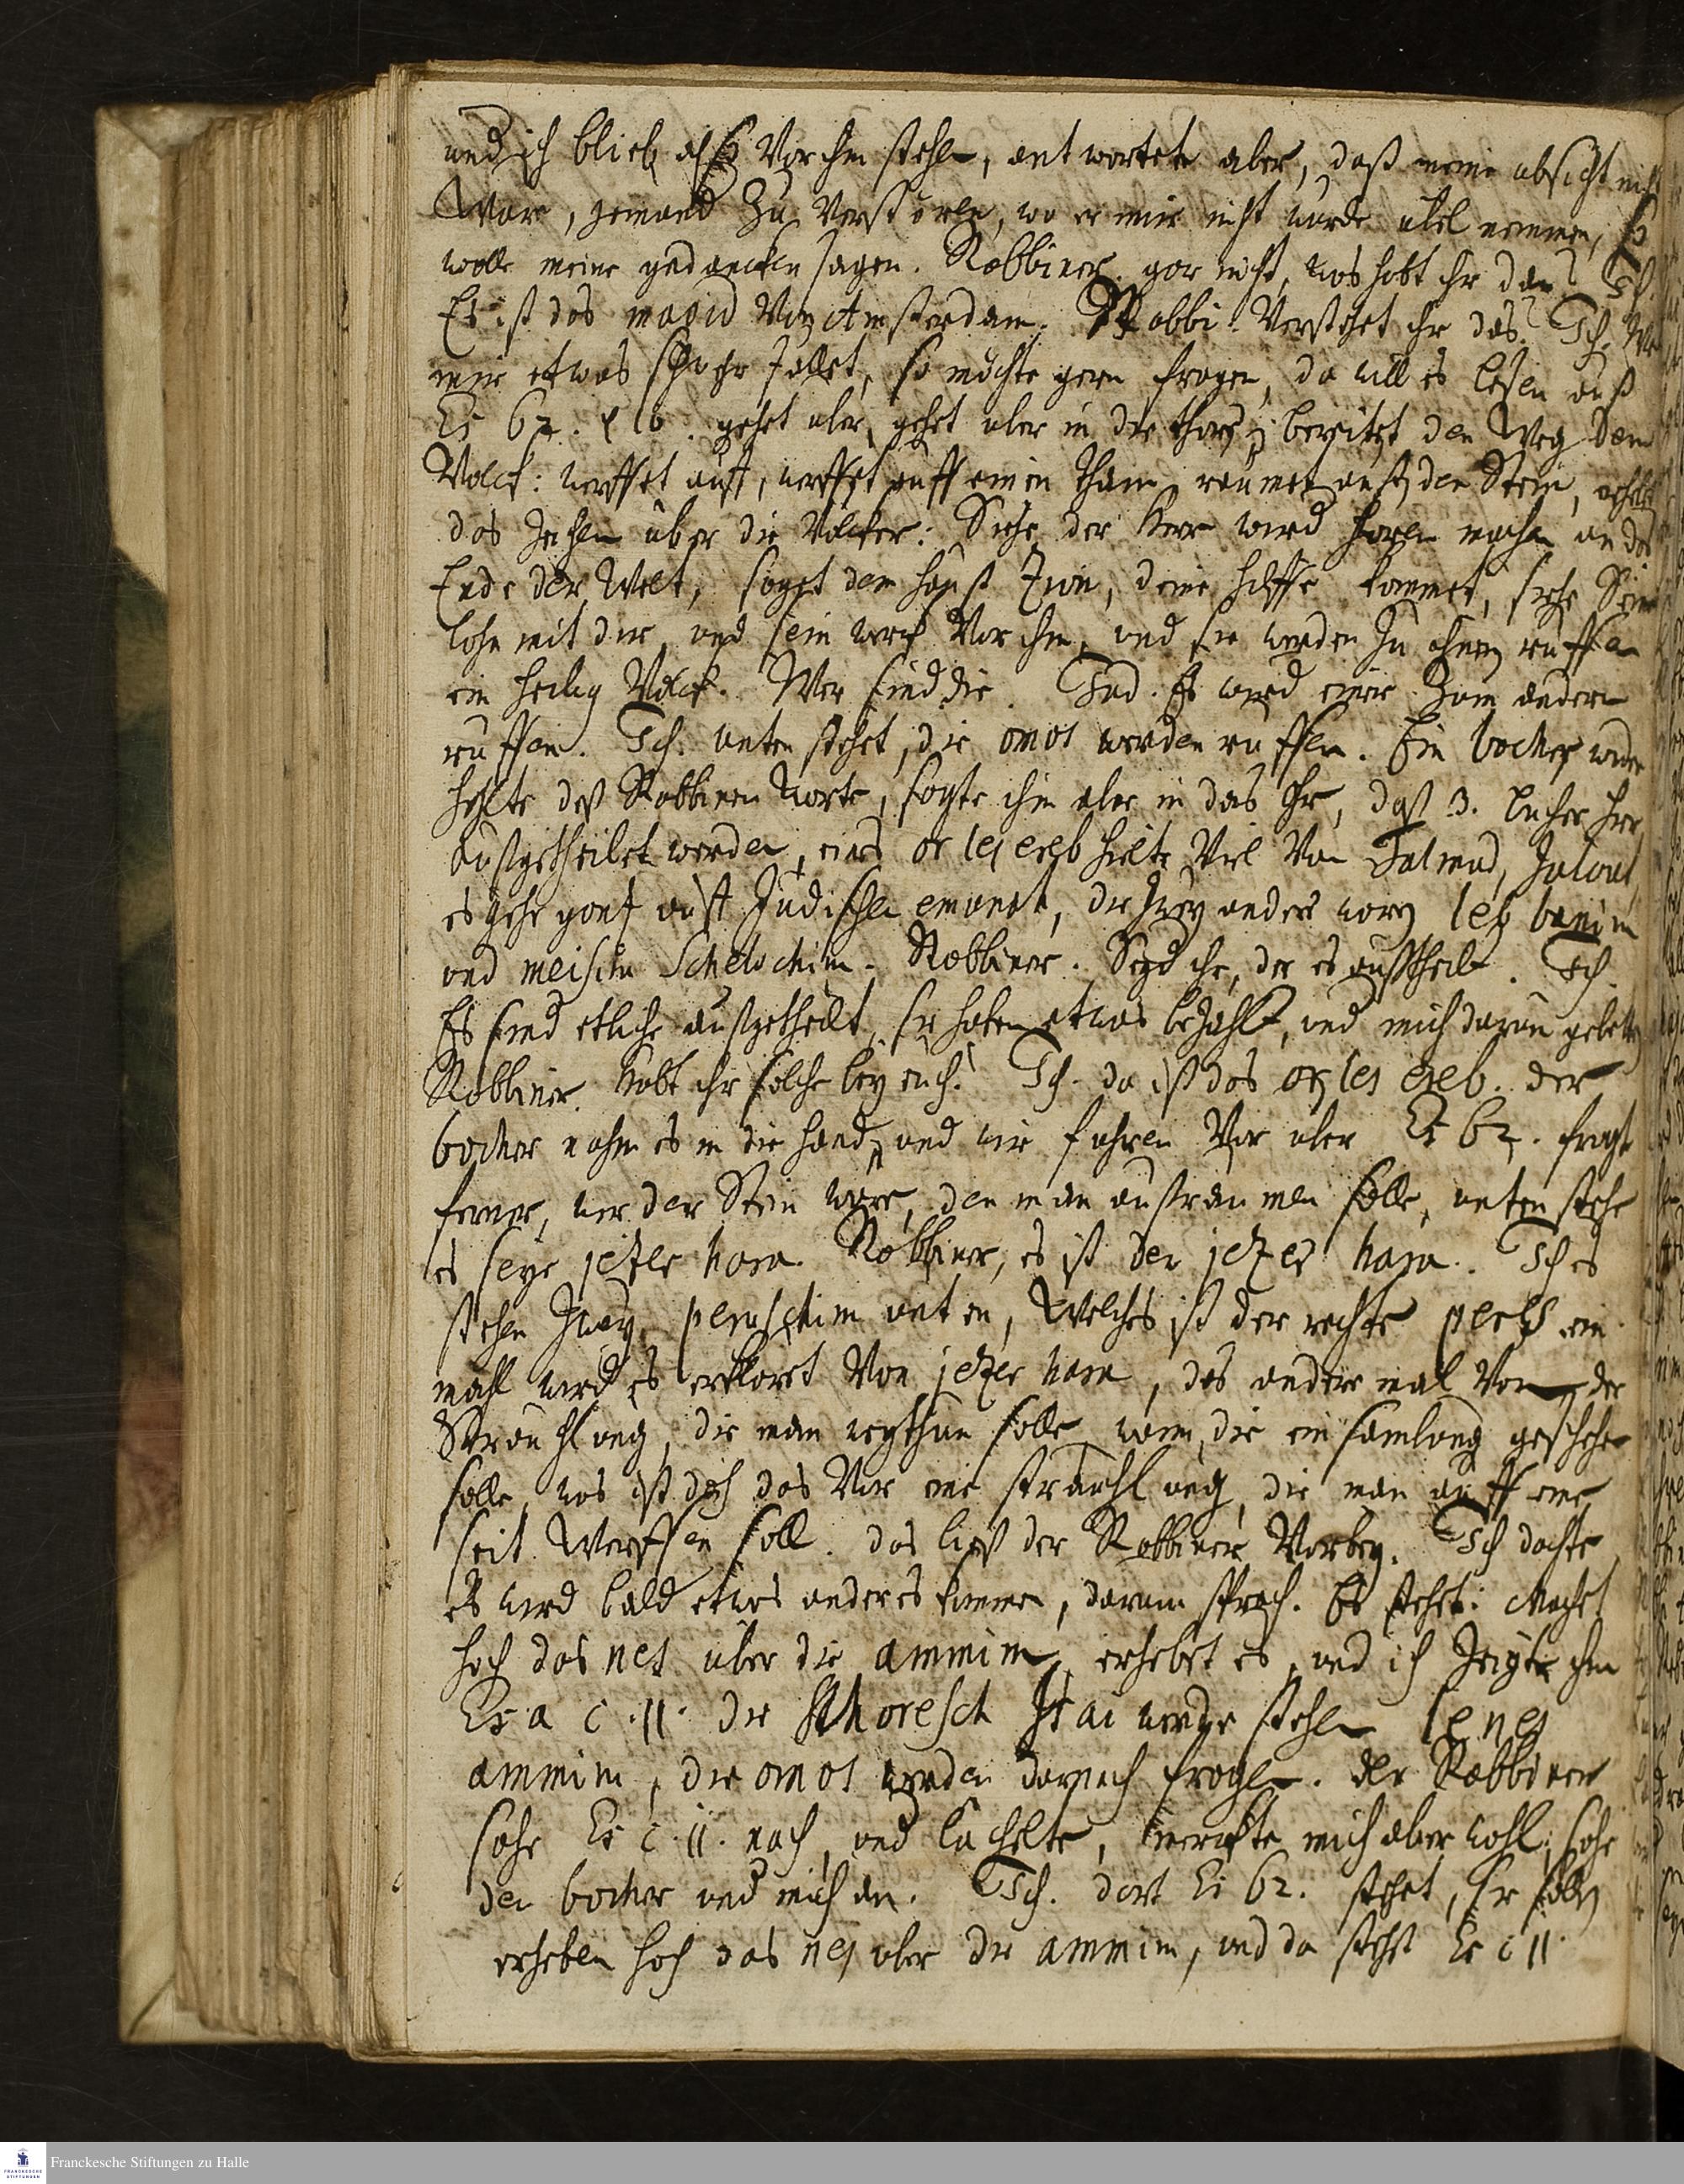 und ich blieb also vor ihm stehen, antwortete aber, daß meine absicht nicht
Wäre, jemand zu verstören, wo er mir nicht würde übel nemmen, so
wolle meine gedancken sagen. Rabbiner. gar nicht, was habt ihr dan? Ich.
Es ist das magid von Amsterdam. Rabbi. Verstehet ihr das? Ich. Wo
mir etwas schwehr fallet, so möchte gern fragen, da will es lesen auß
Es 62. v 10. gehet uber, gehet uber in die thore, bereitet den Weg dem
Volck: werffet auff, werffet auff einen tham, raumet auß den Stein, erhebt
das zeichen über die Völcker: Siehe der Herr wird hören machen an das
Ende der Welt, saget dem hauß Zion, deine hülffe kommet, siehe Sein
lohn mit dir, und sein werck vor ihm, und sie werden zu ihnen ruffen
ein heilig Volck. Wer sind die. Jud. Es wird einer zum andern
ruffen. Ich. unten stehet, die omos werden ruffen. Ein bocher wider
hohlte deß Rabbinen worte, sagte ihm aber in das Ohr, daß 3. bucher hier
außgetheilet werden, eines or les ereb hielte viel von Talmud, Jalcut,
es gehe gantz auff Jüdischen emunot, die zwey andere wären leb banim
und meisim Schelochim. Rabbiner. Seyd ihr, der es außtheilt. Ich.
Es sind etliche außgetheilt, sie haben etwas bezahlt, und mich darum gebetten
Rabbiner. habt ihr solche bey euch? Ich. da ist das or les ereb. der
bocher nahm es in die hand, und wir fuhren vor uber Es 62. fragt
ferner, wer der Stein wäre, den man außraumen solle, unten stehe
es seye jezer hara. Rabbiner, es ist der jezer hara. Ich es
stehen zwey peruschim unten, Welches ist der rechte ein
mahl wird es erkläret von jezer hara, das andere mal von der
Strauchlung, die man wegthun solle, wann die einsamlung geschehen
solle, was ist doch das vor eine strauchlung, die man auff eine
seit werffen soll. das ließ der Rabbiner vorbey. Ich dachte
es wird bald etwas anderes kommen, darum sprach. Es stehet: Machet
hoch das nes über die ammim, erhebet es, und ich zeigte ihm
Esa c. 11. die Schoresch Isai werde stehen le nes
ammim, die omos werden darnach fragen. der Rabbiner
sahe Es c. 11. nach, und lachelte, merckte mich aber wohl, sahe
den bocher und mich an. Ich. dort Es 62. stehet, sie sollen
erheben hoch das nes uber die ammim, und da stehet Es c 11.
Franckesche Stiftungen zu Halle